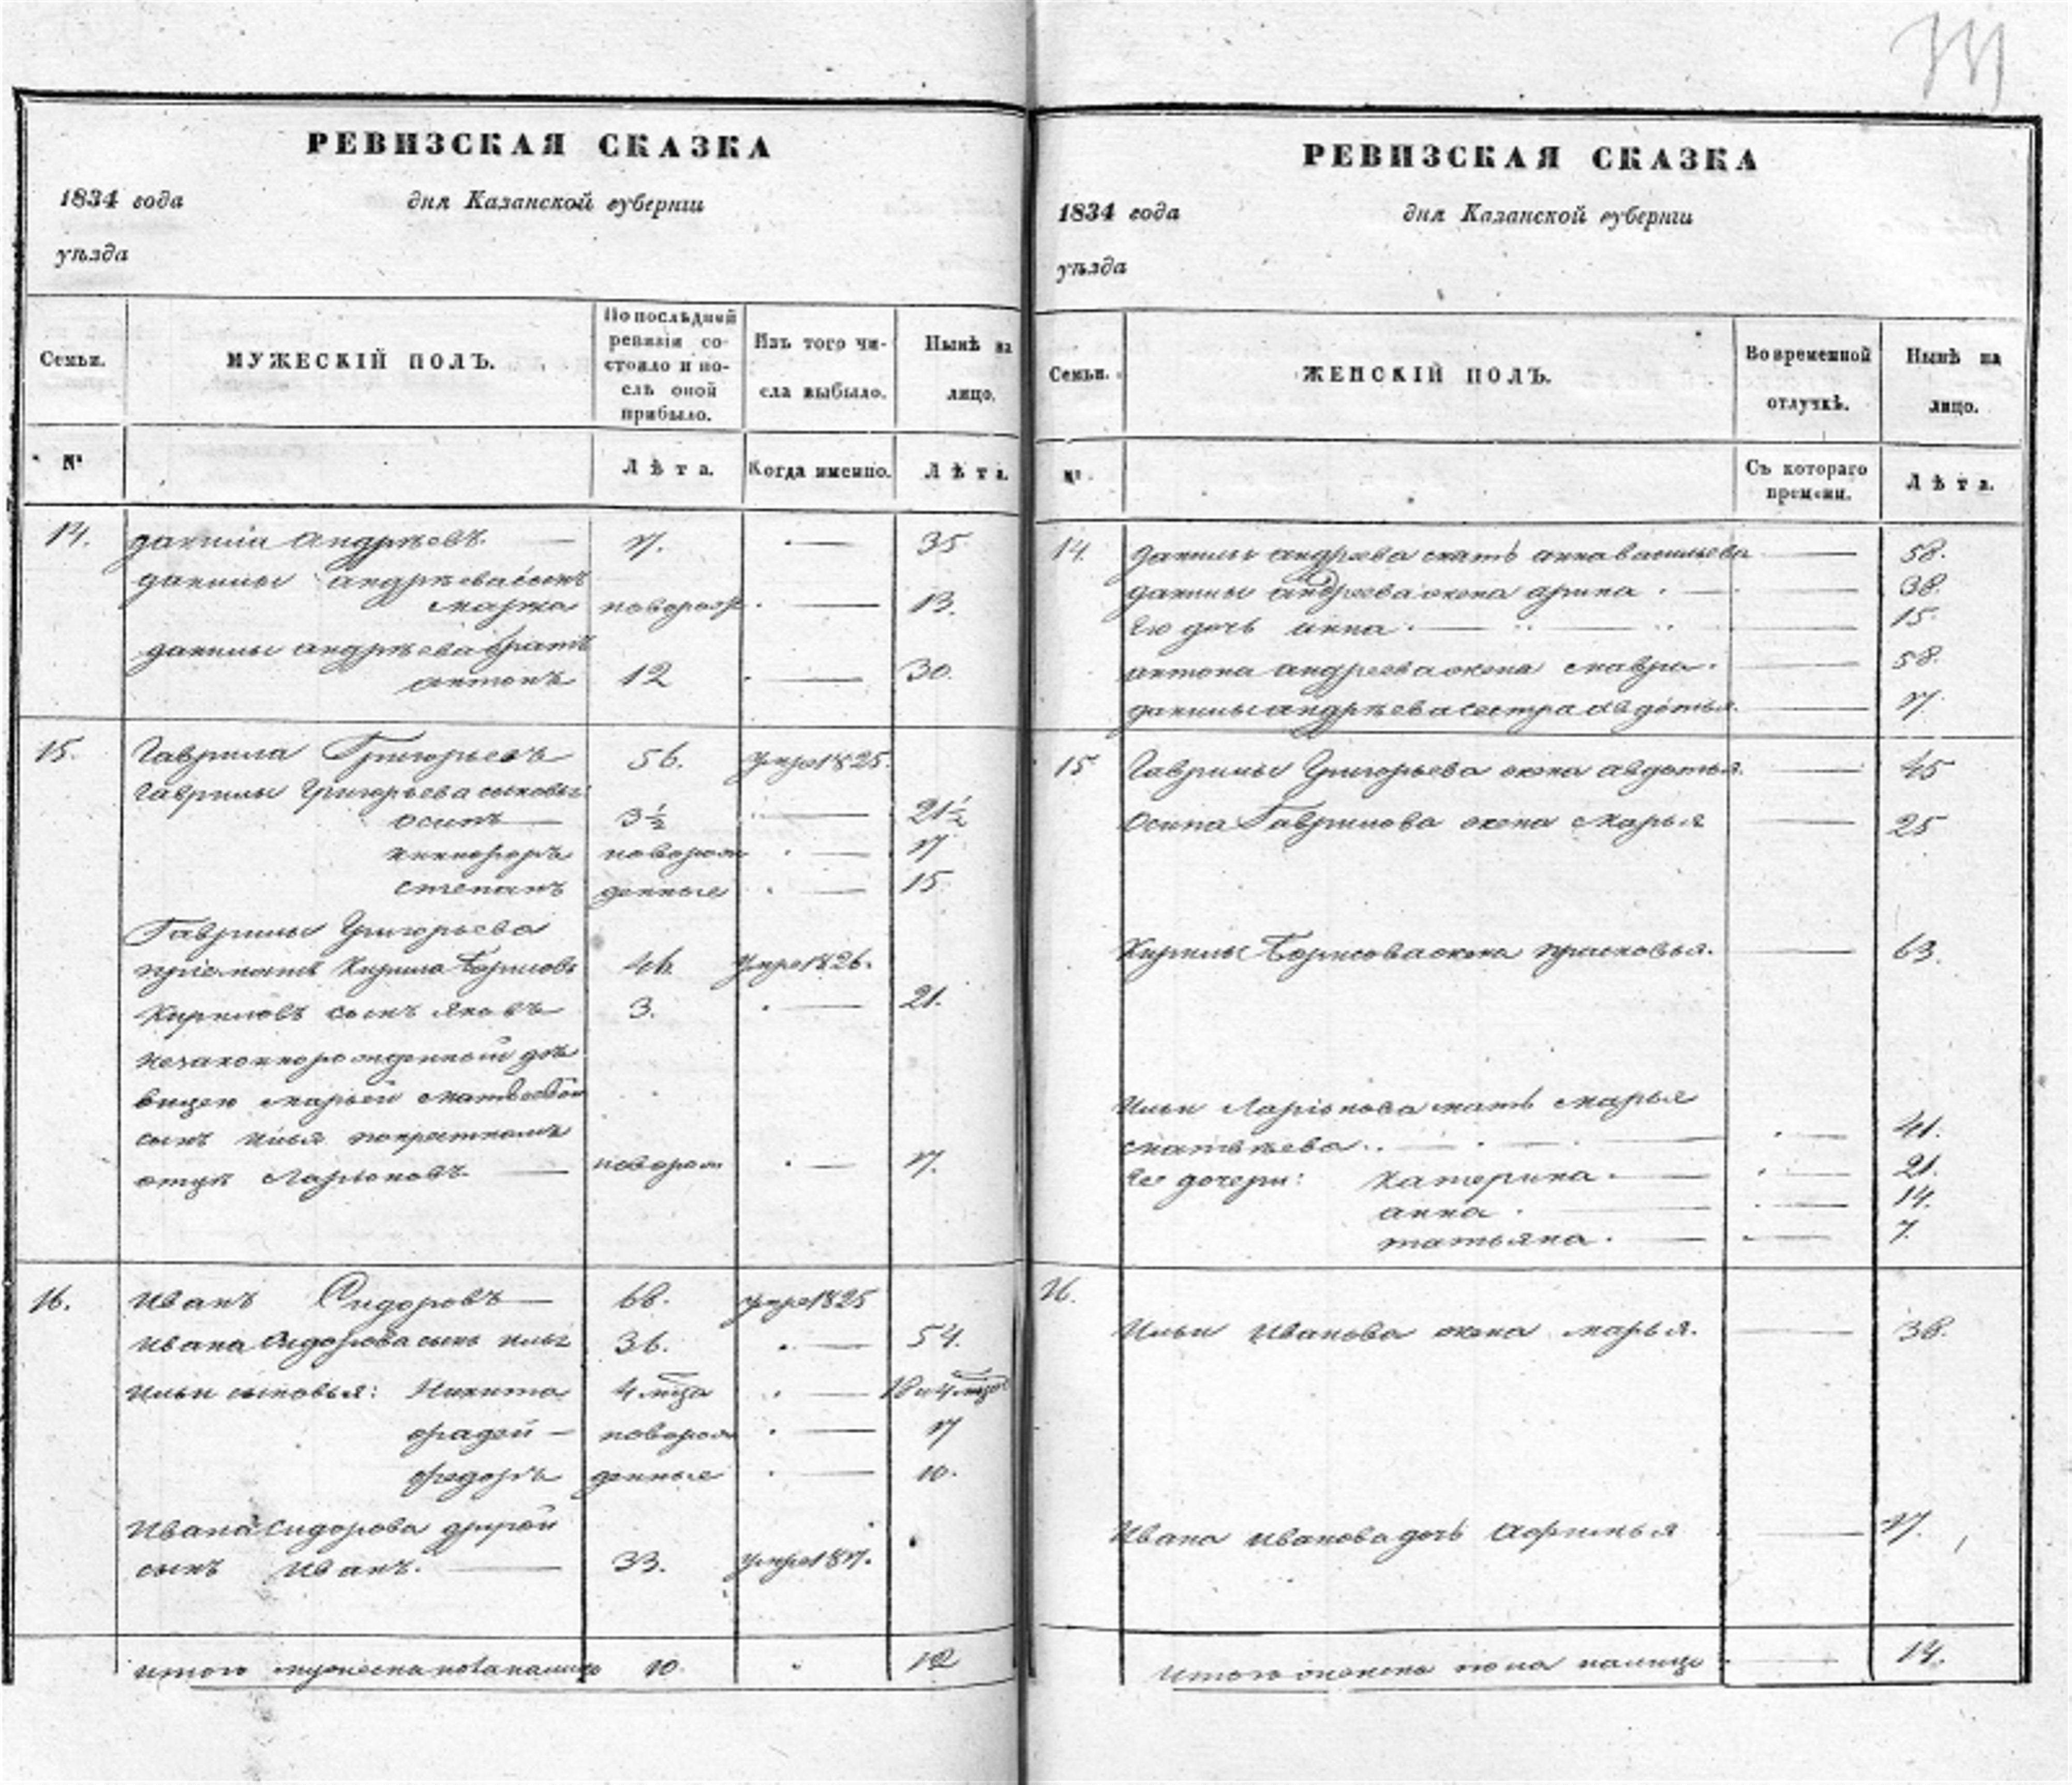 РЕВИЗСКАЯ СКАЗКА
1834 года дня Казанской губерніи
уѣзда
Семьи.
МУЖЕСКІЙ ПОЛЪ.
По послѣдней ревизіи состояло и послѣ оной прибыло.
Изъ того числа выбыло.
Нынѣ на лицо.
№
Лѣта.
Когда именно.
Лѣта.
14. Данила Андрѣевъ 35
Данилы Андрѣева сынъ
Марка новорож 13.
Данилы Андрѣева братъ
Антонъ 12 30.
15. Гаврила Григорьевъ 56. умре 1825.
Гаврилы Григорьева сыновья:
Осипъ 3½ 21½
Никифоръ новорож
Степанъ денные 15.
Гаврилы Григорьева
пріемышъ Кирила Борисовъ 46 умре 1826.
Кириловъ сынъ Яковъ 3. 21.
незаконнорожденный дѣ
вицею Марьей Матвеевой
сынъ Илья по крестному
отцу Ларіоновъ новорож
16. Иванъ Сидоровъ 68. умре 1825
Ивана Сидорова сынъ Илья 36. 54.
Ильи сыновья: Никита 4 мца 18 и 4 мца
Фадей новорож
Федоръ денные 10.
Ивана Сидорова другой
сынъ Иванъ. 33. умре
Итого мужеска пола налицо 10 12
РЕВИЗСКАЯ СКАЗКА
1834 года дня Казанской губерніи
уѣзда
Семьи.
ЖЕНСКІЙ ПОЛЪ.
Во временной отлучкѣ.
Нынѣ на лицо.
№
Съ котораго времени.
Лѣта.
14. Данилы Андрева мать Анна Васильева 58.
Данилы Андреева жена Арина 38.
Его дочь Анна 15.
Антона Андреева жена Мавра. 58.
Данилы Андрѣева сестра Авдотья.
15 Гаврилы Григорьева жена Авдотья. 45
Осипа Гаврилова жена Марья 25
Кирилы Борисова жена Прасковья. 63.
Ильи Ларіонова мать Марья
Матвѣева 41.
Ее дочери: Катерина 21.
Анна 14.
Татьяна 7.
16.
Ильи Иванова жена Марья. 38.
Ивана Иванова дочь Афимья
Итого женска пола налицо 14.